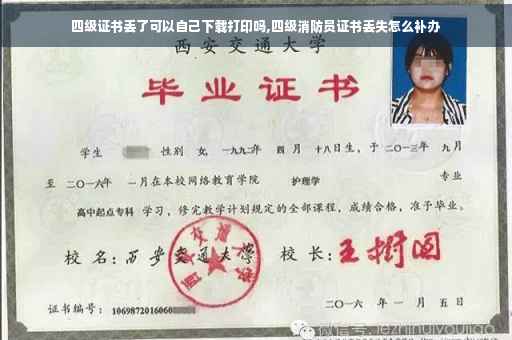 四级证书丢了可以自己下载打印吗,四级消防员证书丢失怎么补办
西安交通大学
毕业证书
学生 性别 女, 一九九二年 四月 十八日生, 于 二〇一三年 九月
至 二〇一六年 一月在本校网络教育学院 护理学 专业
高中起点专科 学习, 修完教学计划规定的全部课程, 成绩合格, 准予毕业。
校名: 西安交通大学 校长: 王树国
西安交通大学
证书编号: 1069872016060
二〇一六年一月五日
微信号: jezhihuiyoujiao